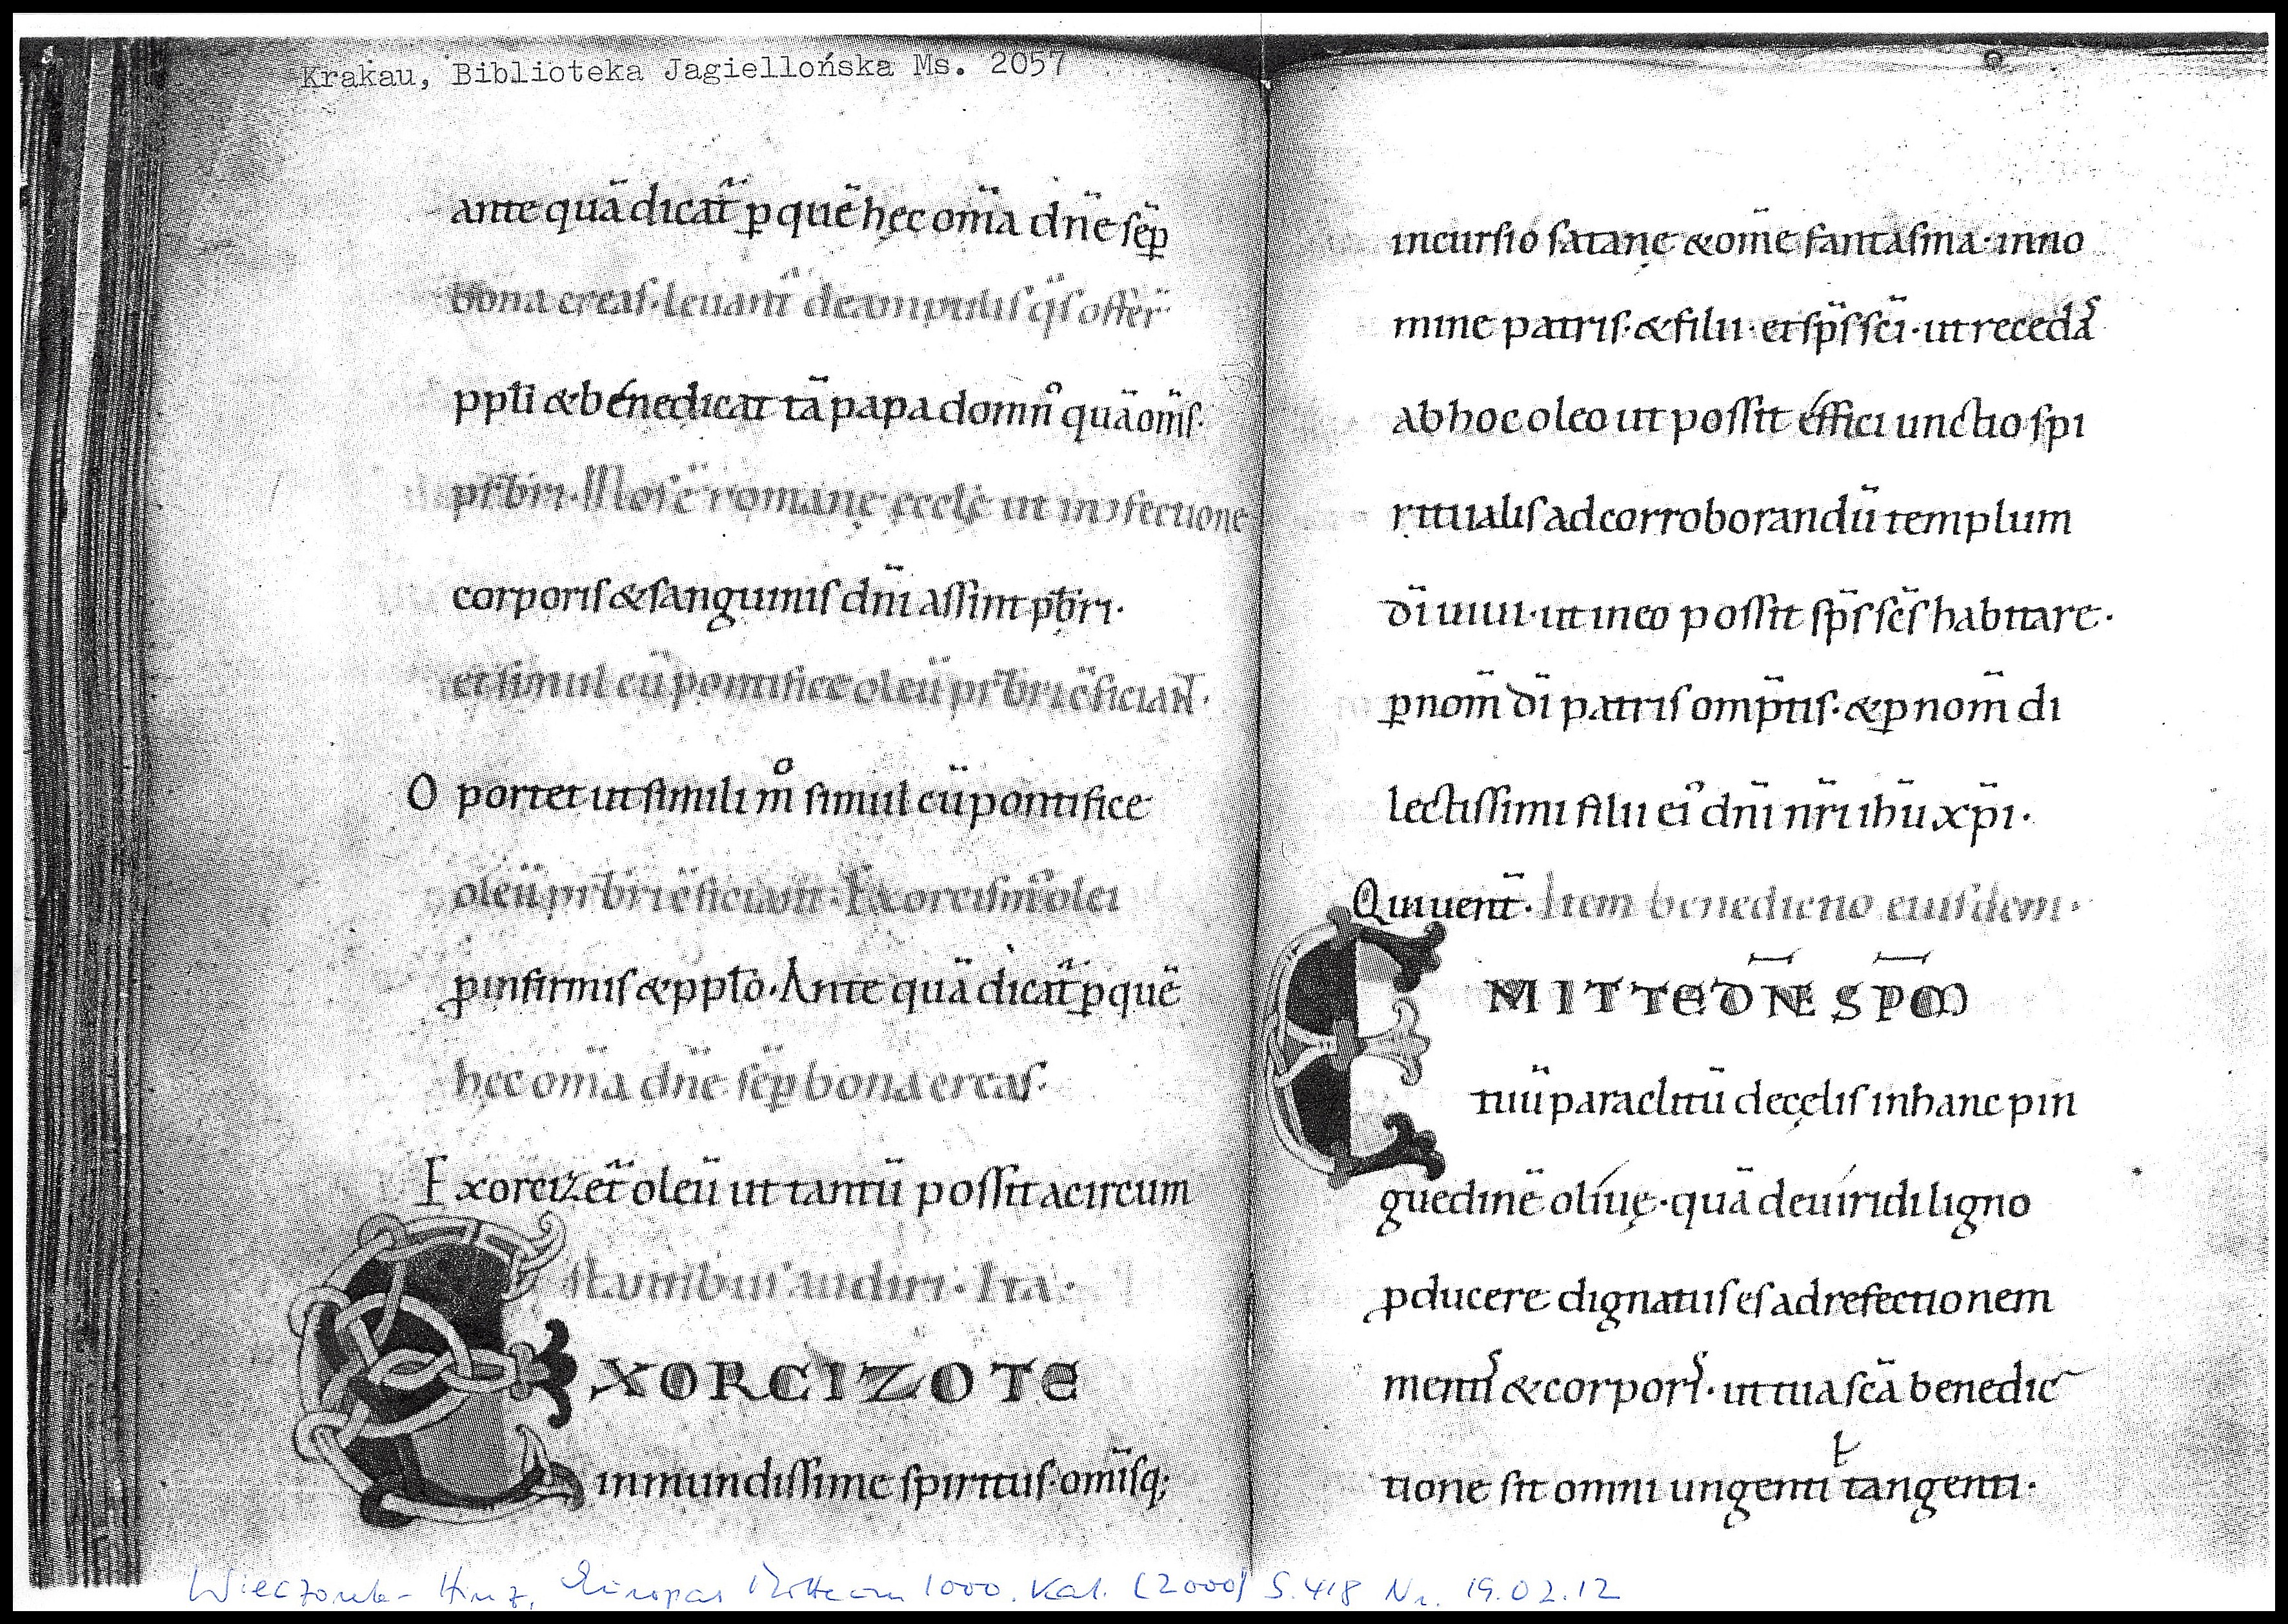 Krakau, Biblioteka Jagiellońska Ms. 2057
ante quā dicat̄ ꝑ quē hęc om̄a dn̄e sēp
bona creas· leuant̄ de ampulis q̄s offer̄
ppl̄i & benedicat tā papa domn̊ quā om̄s·
pr̄bri· Mos ē romanę ecclę̄ ut in ꝯfectione
corporis & sanguinis dn̄i assint pb̄ri·
et simul cū pontifice oleū pr̄bri ꝯficiaɴ̄t·
O portet ut simili m̊ simul cū pontifice
oleū pr̄bri ꝯficiant· Exorcism̄ olei
ꝓ infirmis & ppl̄o· Ante quā dicat̄ ꝑ quē
hęc om̄a dn̄e sēp bona creas·
Exorcizet̄ oleū ut tantū possit a circum
stantibus audiri· Ita·
EXORCIZO TE
inmundissime spiritus· om̄isq;
incursio satanę & om̄e fantasma· in no
mine patris· & filii· et sp̄s sc̄i· ut recedas
ab hoc oleo ut possit éffici unctio spi
ritualis ad corroborandū templum
dī uiui· ut in eo possit sp̄s sc̄s habitare·
ꝑ nom̄ dī patris omp̄tis· & ꝑ nom̄ di
lectissimi filii ei᾿ dn̄i nr̄i ih̄u xp̄i·
Qui uent̄· Item benedictio eiusdem·
EMITTE DN̄E SPM̄
tuū paraclitū de cęlis in hanc pin
guedinē olíuę· quā de uíridi ligno
ꝓducere dignatus es ad refectionem
mentis & corporis· ut tua sc̄a benedic
tione sit omni ungenti ł tangenti·
Wieczorek - Hinz, Europas Mitte um 1000. Kat. (2000) S. 418 Nr. 19.02.12